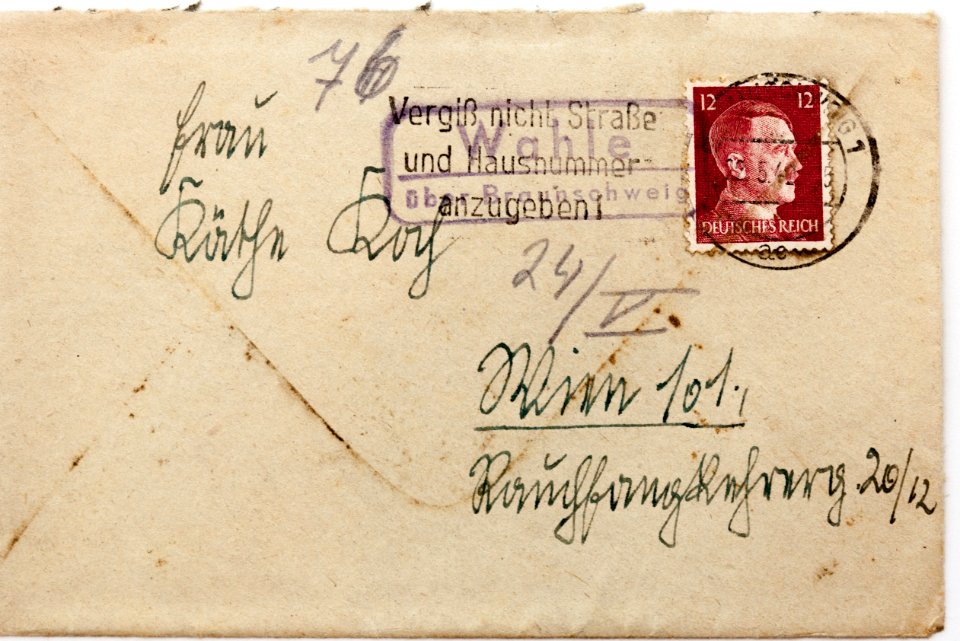 76
Frau
Käthe Koch
Vergiß nicht Straße
und Hausnummer
anzugeben!
Wahle
über Braunschweig
12 12
DEUTSCHES REICH
1
ac
24/V
Wien 101.,
Rauchfangkehrerg. 20/12